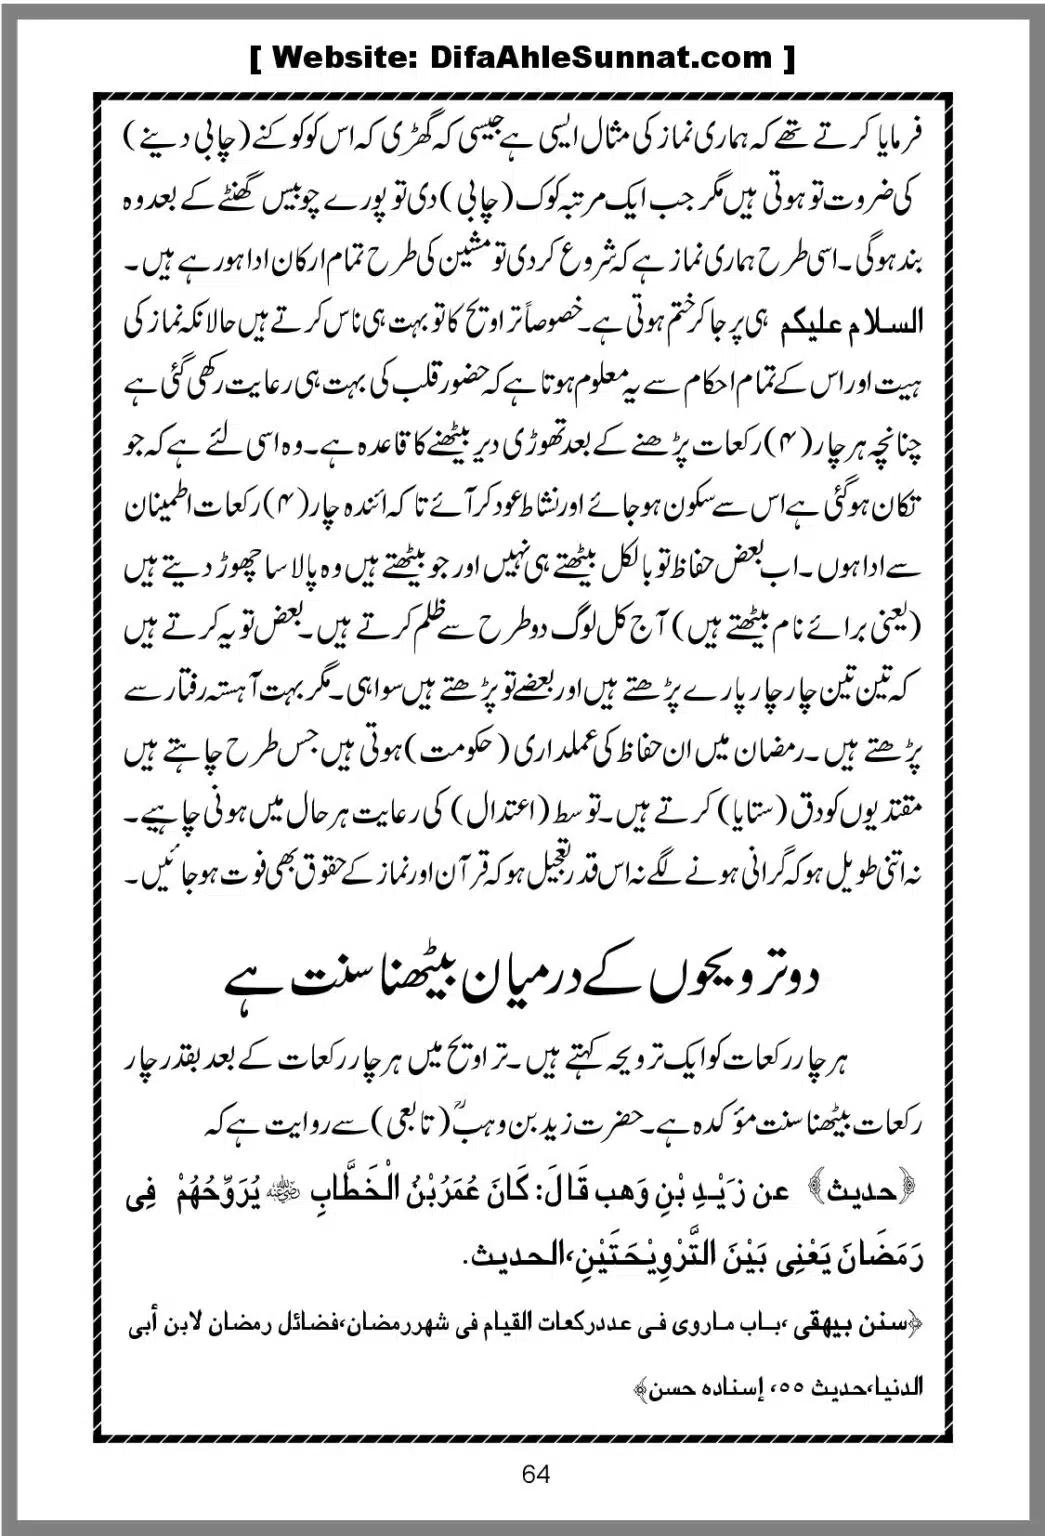 [ Website: DifaAhleSunnat.com ]
فرمایا کرتے تھے کہ ہماری نماز کی مثال ایسی ہے جیسی کہ گھڑی کہ اس کو کوکنے (چابی دینے)
کی ضروت تو ہوتی ہیں مگر جب ایک مرتبہ کوک (چابی) دی تو پورے چوبیس گھنٹے کے بعد وہ
بند ہوگی۔ اسی طرح ہماری نماز ہے کہ شروع کر دی تو مشین کی طرح تمام ارکان ادا ہو رہے ہیں۔
السلام علیکم ہی پر جا کر ختم ہوتی ہے۔ خصوصاً تراویح کا تو بہت ہی ناس کرتے ہیں حالانکہ نماز کی
ہیت اور اس کے تمام احکام سے یہ معلوم ہوتا ہے کہ حضور قلب کی بہت ہی رعایت رکھی گئی ہے
چنانچہ ہر چار (۴) رکعات پڑھنے کے بعد تھوڑی دیر بیٹھنے کا قاعدہ ہے۔ وہ اسی لئے ہے کہ جو
تکان ہوگئی ہے اس سے سکون ہو جائے اور نشاط عود کر آئے تا کہ ائندہ چار (۴) رکعات اطمینان
سے ادا ہوں۔ اب بعض حفاظ تو بالکل بیٹھتے ہی نہیں اور جو بیٹھتے ہیں وہ پالا سا چھوڑ دیتے ہیں
(یعنی برائے نام بیٹھتے ہیں) آج کل لوگ دو طرح سے ظلم کرتے ہیں۔ بعض تو یہ کرتے ہیں
کہ تین تین چار چار پارے پڑھتے ہیں اور بعضے تو پڑھتے ہیں سوا ہی۔ مگر بہت آہستہ رفتار سے
پڑھتے ہیں۔ رمضان میں ان حفاظ کی عملداری (حکومت) ہوتی ہیں جس طرح چاہتے ہیں
مقتدیوں کو دق (ستایا) کرتے ہیں۔ توسط (اعتدال) کی رعایت ہر حال میں ہونی چاہیے۔
نہ اتنی طویل ہو کہ گرانی ہونے لگے نہ اس قدر تعجیل ہو کہ قرآن اور نماز کے حقوق بھی فوت ہو جائیں۔
دو ترویحوں کے درمیان بیٹھنا سنت ہے
ہر چار رکعات کو ایک ترویحہ کہتے ہیں۔ تراویح میں ہر چار رکعات کے بعد بقدر چار
رکعات بیٹھنا سنت مؤکدہ ہے۔ حضرت زید بن وہبؒ (تابعی) سے روایت ہے کہ
﴿حدیث﴾ عن زَیْدِ بْنِ وَهب قَالَ: کَانَ عُمَرُ بْنُ الْخَطَّابِ رضی اللہ عنہ یُرَوِّحُهُمْ فِی
رَمَضَانَ یَعْنِی بَیْنَ التَّرْوِیْحَتَیْنِ، الحدیث.
﴿سنن بیهقی، باب ماروی فی عدد رکعات القیام فی شهر رمضان، فضائل رمضان لابن أبی
الدنیا، حدیث ٥٥، إسناده حسن﴾
64